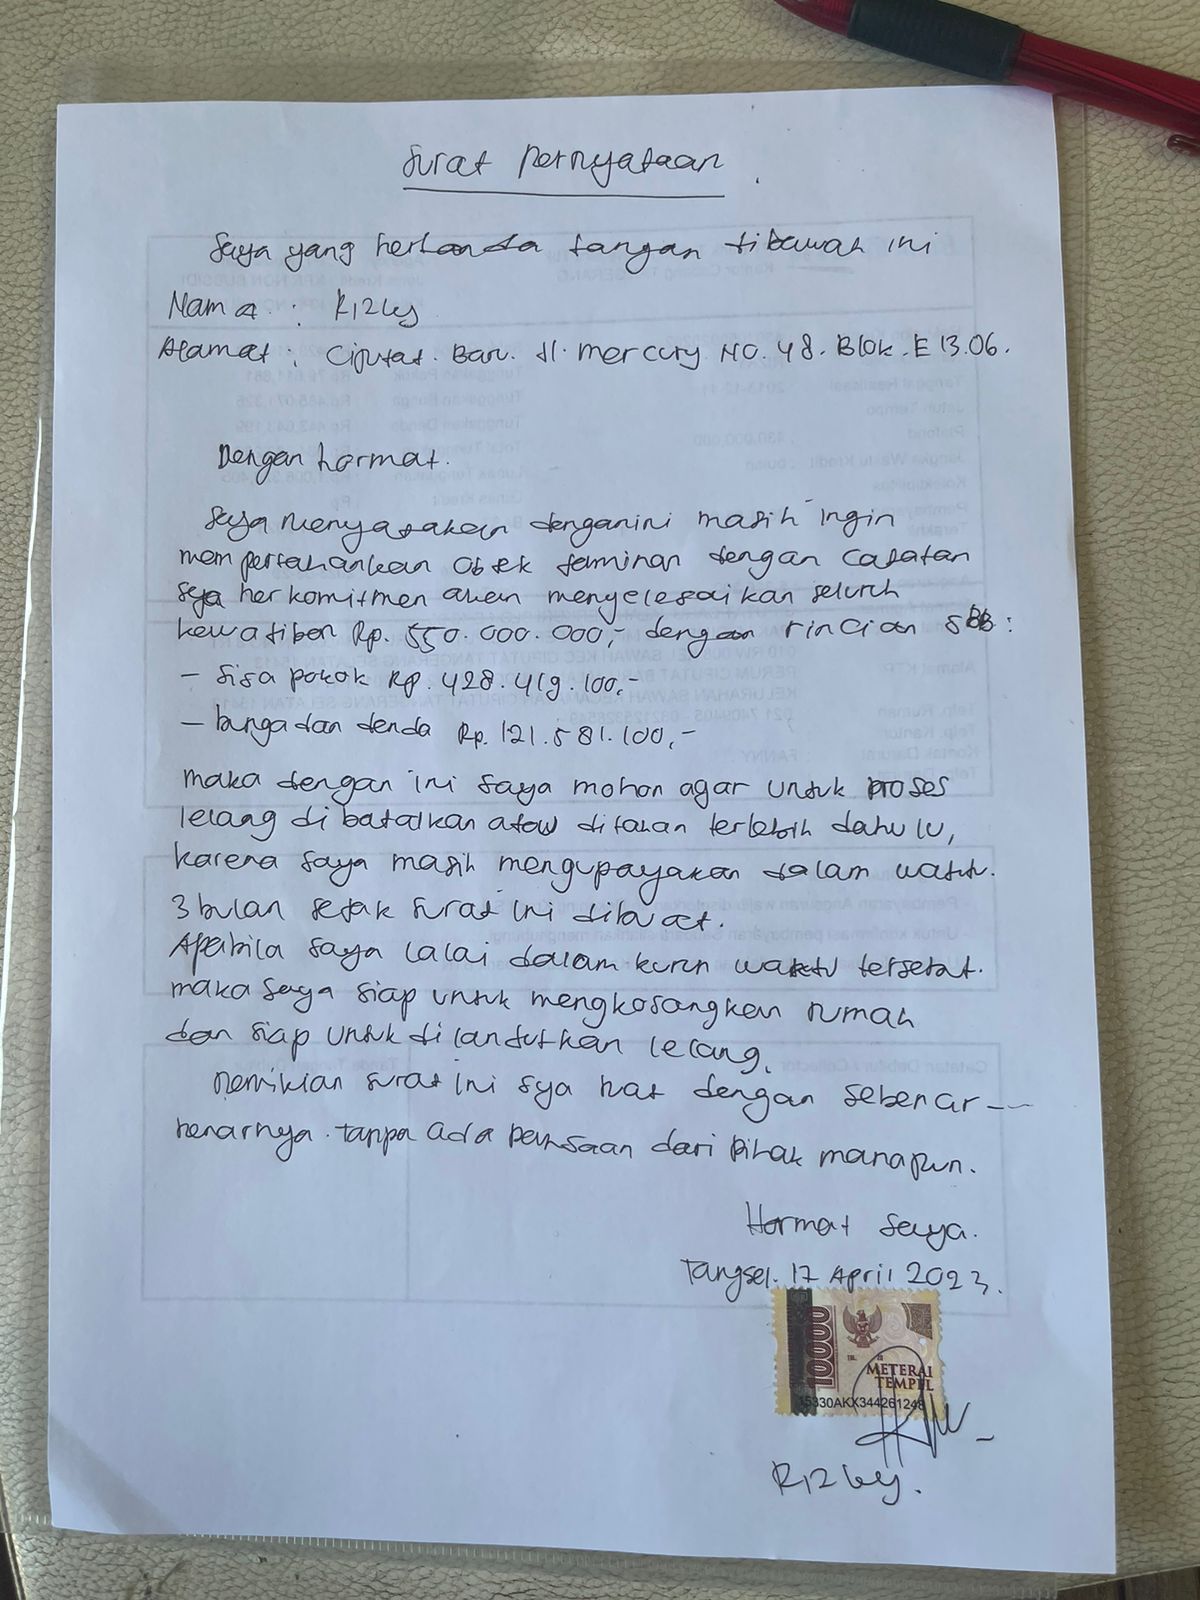 Surat Pernyataan.
Saya yang bertanda tangan dibawah ini
Nama : Rizky
Alamat : Ciputat. Baru. Jl. mercury NO. 48. Blok. E 13.06.
Dengan hormat.
Saya menyatakan dengan ini masih ingin
mempertahankan objek jaminan dengan catatan
saya berkomitmen akan menyelesaikan seluruh
kewajiban Rp. 550.000.000,- dengan rincian SBB:
- Sisa pokok Rp. 428.419.100,-
- bunga dan denda Rp. 121.581.100,-
maka dengan ini saya mohon agar untuk proses
lelang dibatalkan atau ditahan terlebih dahulu,
karena saya masih mengupayakan dalam waktu.
3 bulan sejak surat ini dibuat.
Apabila saya lalai dalam kurun waktu tersebut.
maka saya siap untuk mengkosangkan rumah
dan siap untuk dilanjutkan lelang.
Demikian surat ini sya buat dengan sebenar --
benarnya. tanpa ada paksaan dari pihak manapun.
Hormat saya.
Tangsel. 17 April 2023.
10000
TGL. 20
METERAI
TEMPEL
15330AKX344261248
Rizky.